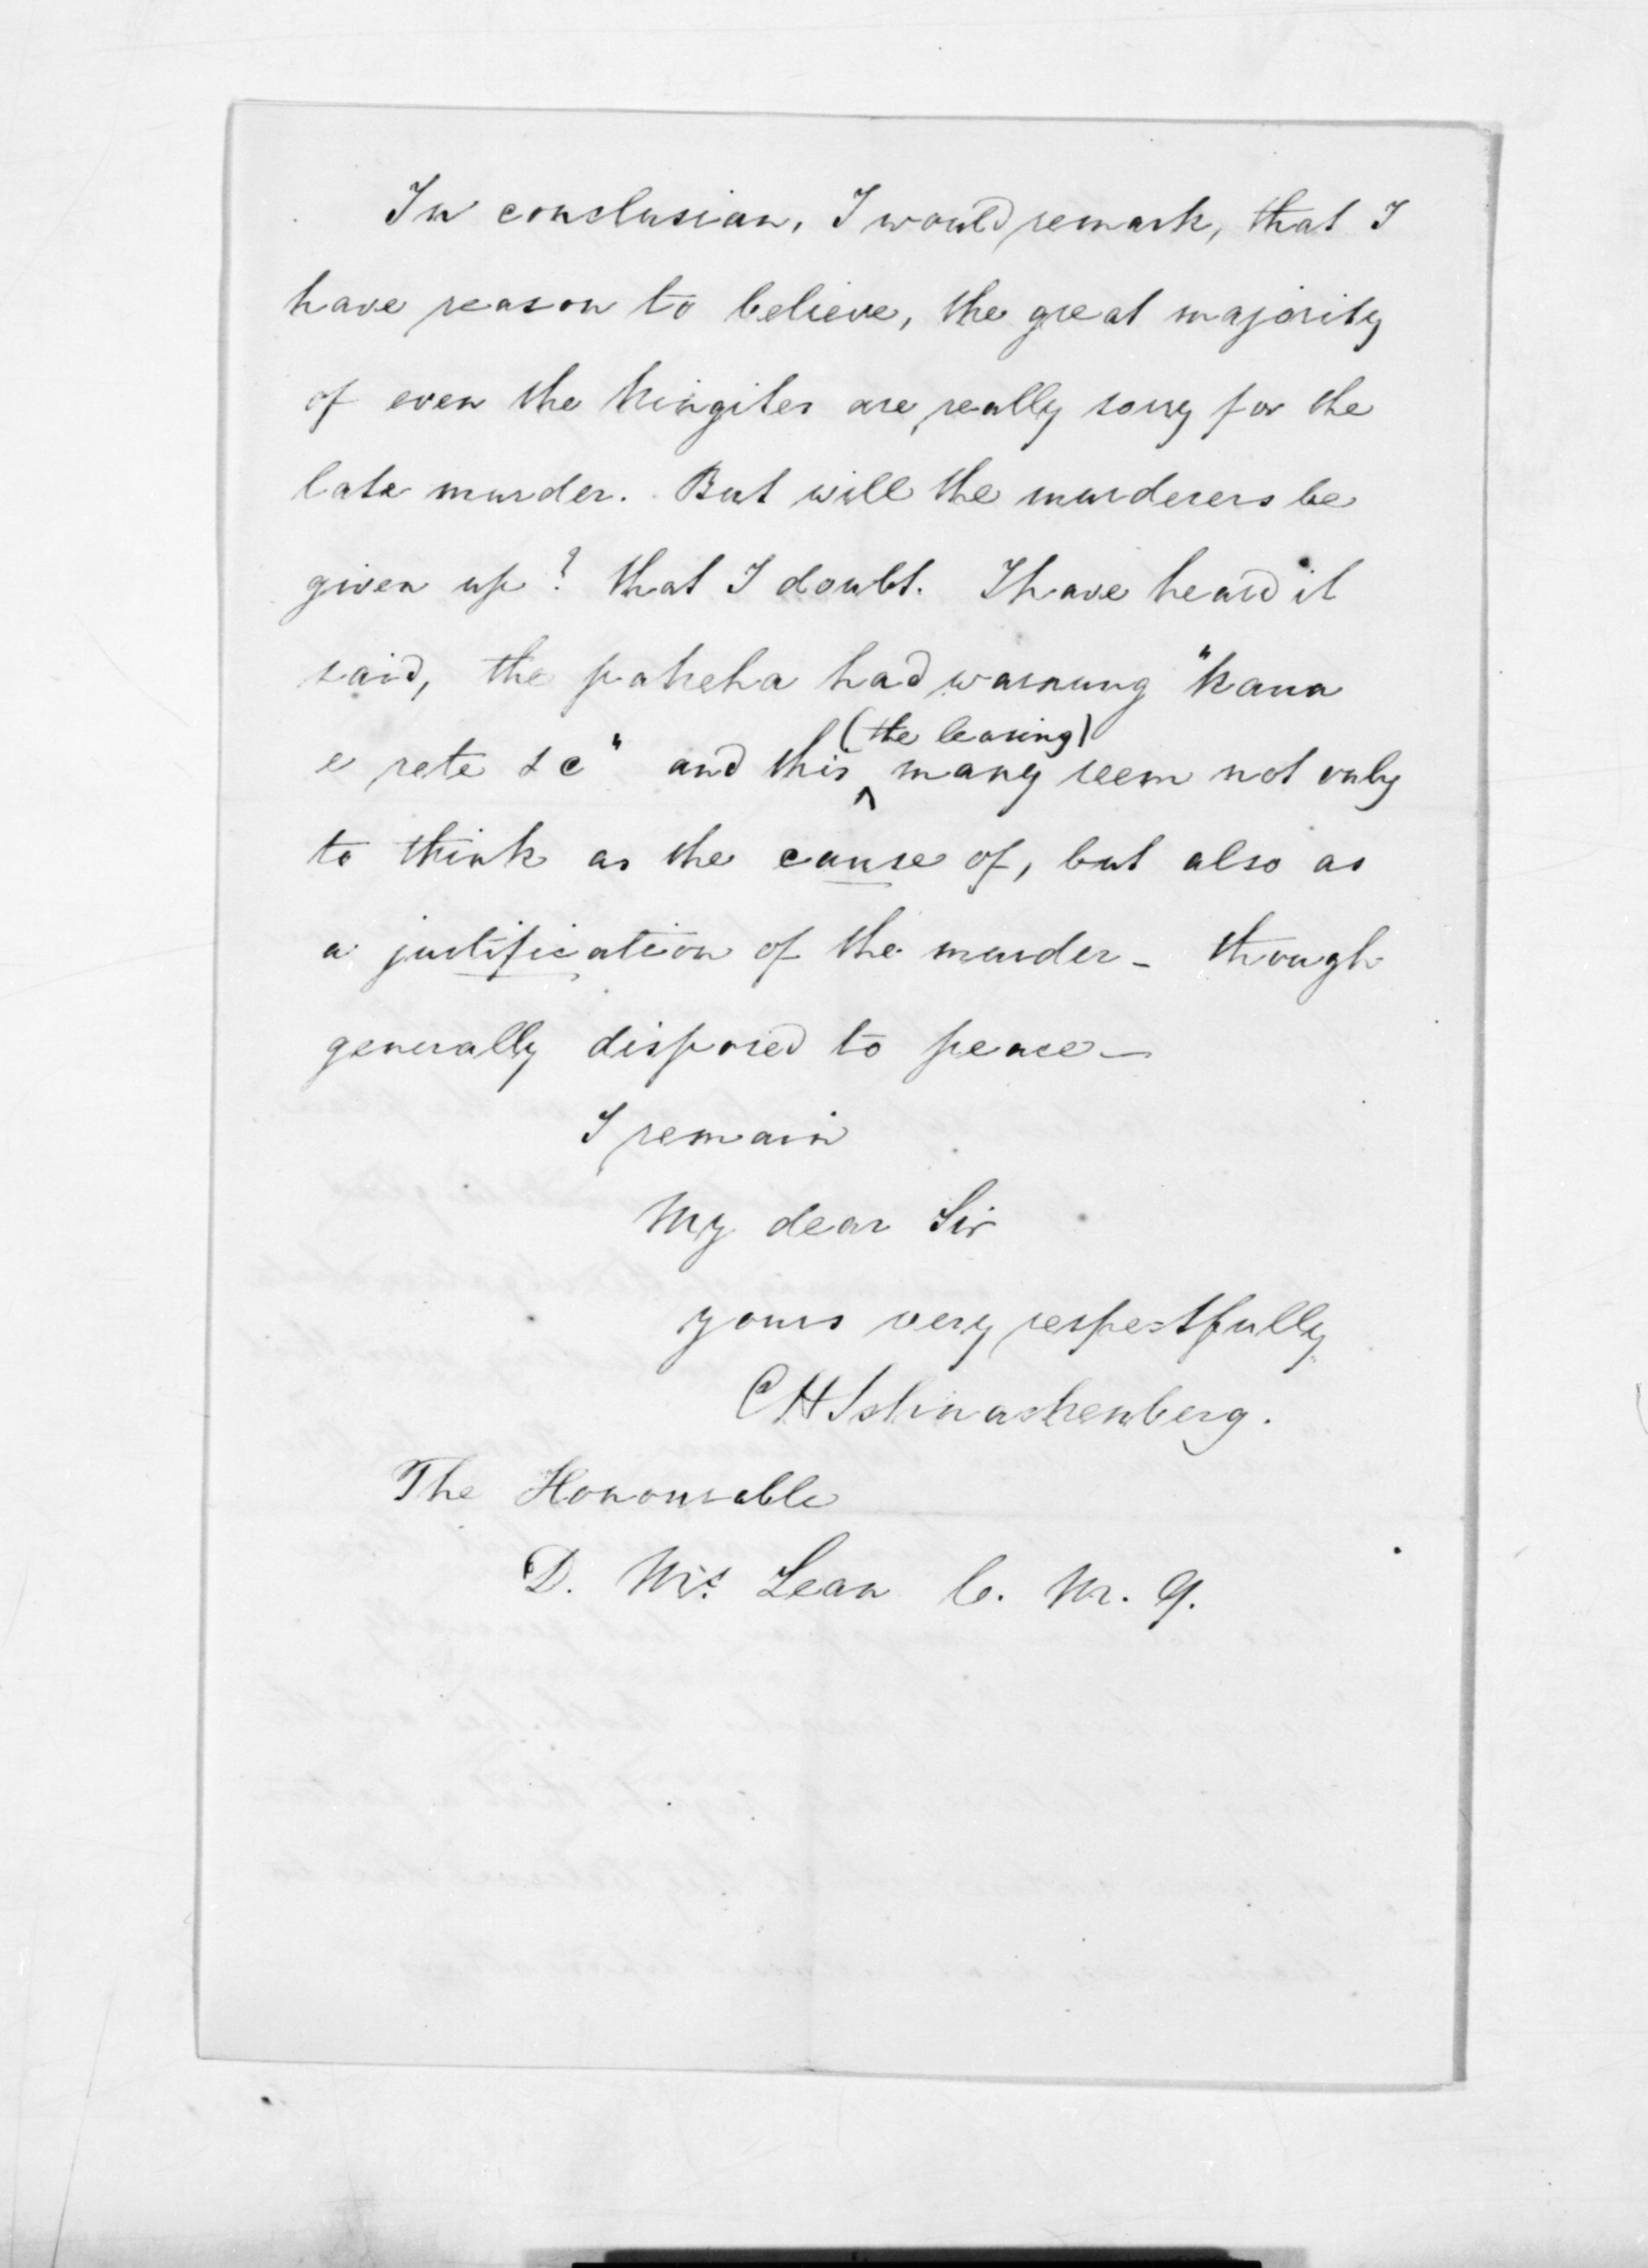 In conclusion, I would remark, that I
have reason to believe, the great majority
of even the Kingites are really sorry for the
late murder. But will the murderers be
given up? that I doubt. I have heard it
said, the pakeha had warning "kaua
(the leasing)
e rete &c" and this ^ many seem not only
to think as the cause of, but also as
a justification of the murder - though
generally disposed to peace -
I remain
My dear Sir
yours very respectfully
CHSchnackenberg.
The Honourable
D. Mc. Lean C. M. G.